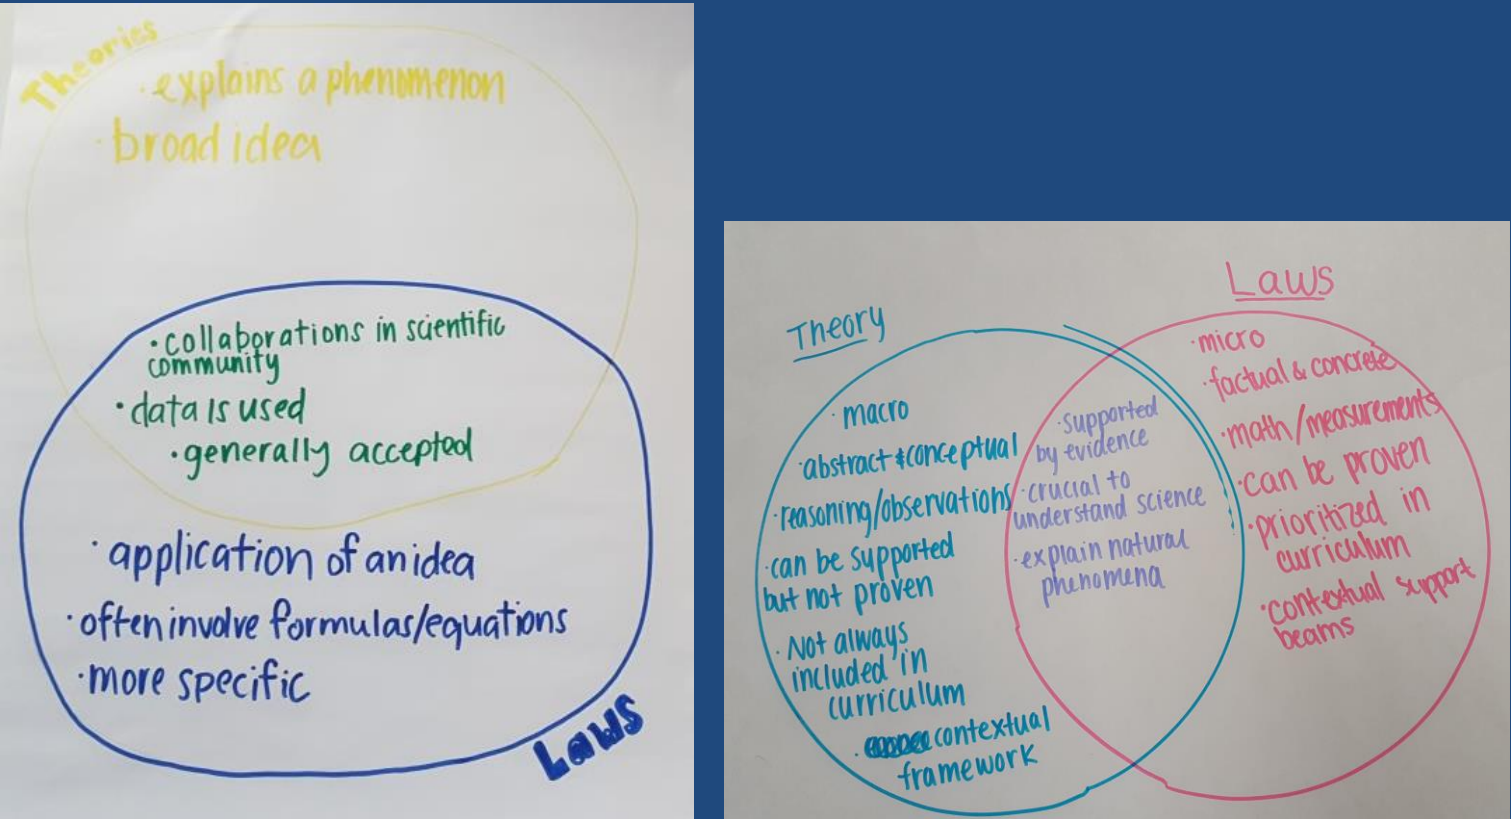 Theories
· explains a phenomenon
· broad idea
· collaborations in scientific
community
· data is used
· generally accepted
· application of an idea
· often involve formulas/equations
· more specific
Laws
Theory
· macro
· abstract & conceptual
· reasoning/observations
· can be supported
but not proven
· Not always
included in
curriculum
· contextual
framework
· supported
by evidence
· crucial to
understand science
· explain natural
phenomena
Laws
· micro
· factual & concrete
· math/measurements
· can be proven
· prioritized in
curriculum
· contextual support
beams